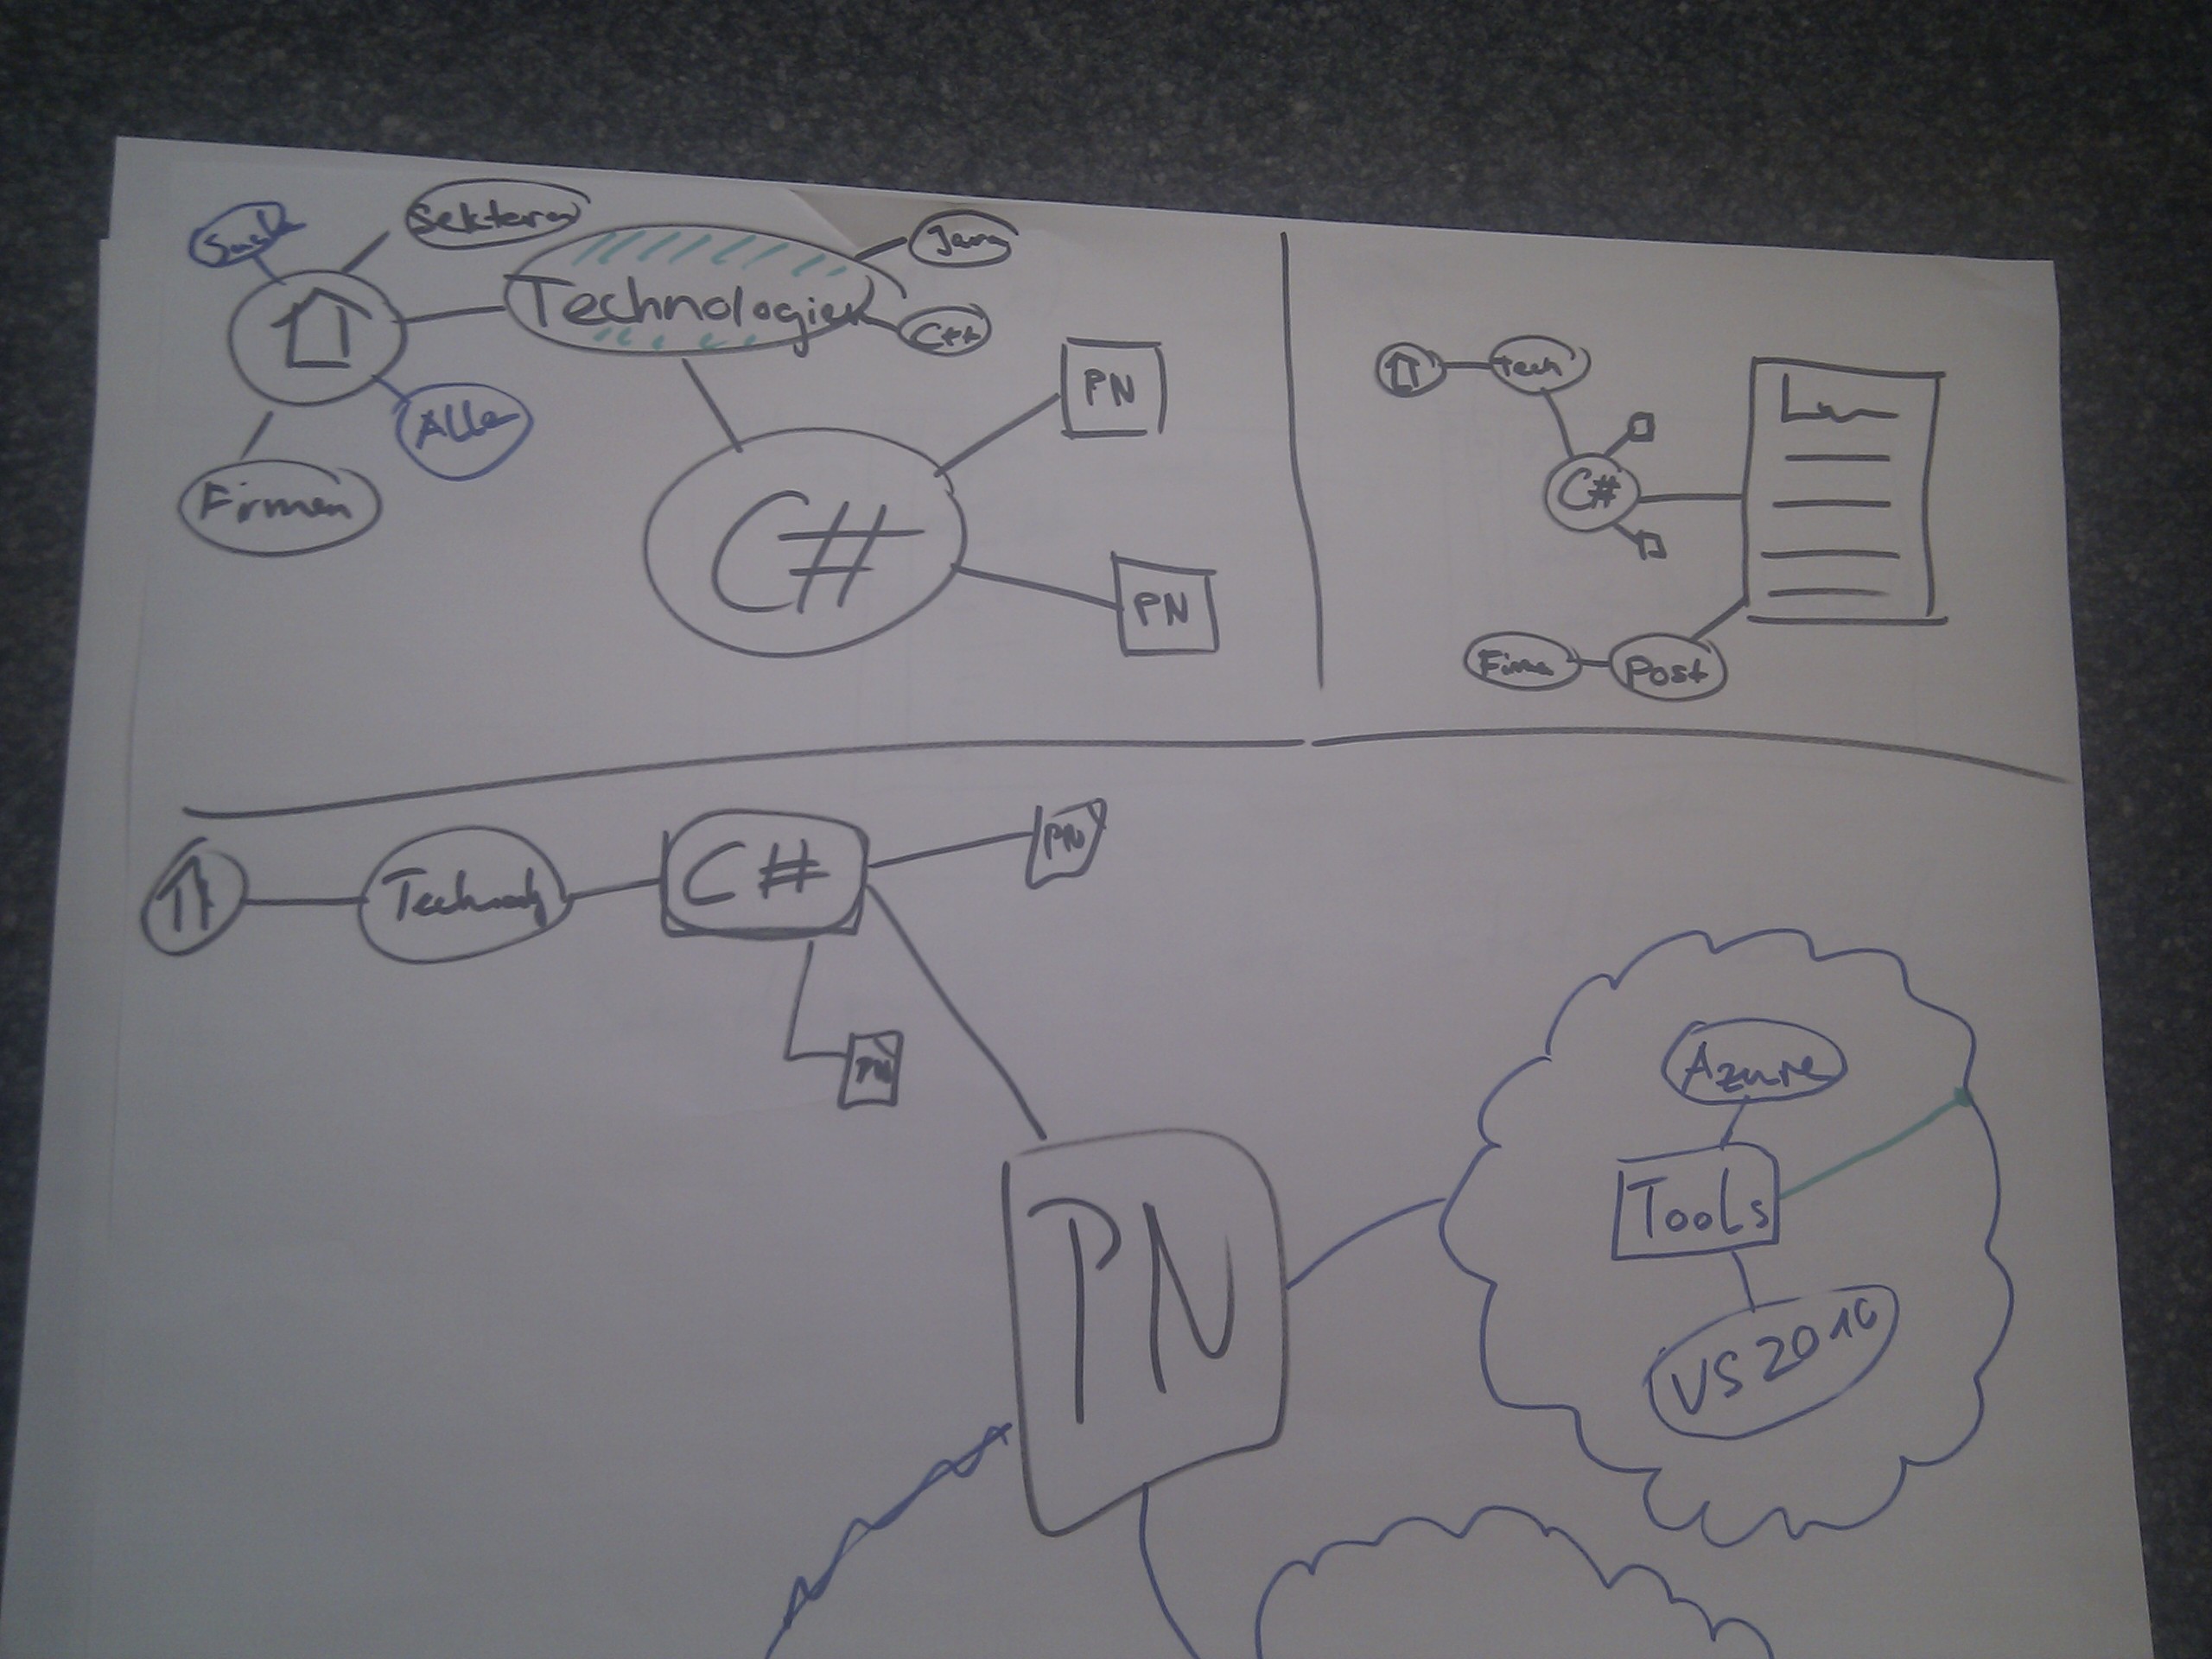 Sektoren
Technologien
Java
C++
Alle
Firmen
C#
PN
PN
Tech
C#
Firma
Post
C#
PN
PN
PN
Azure
Tools
VS 2010